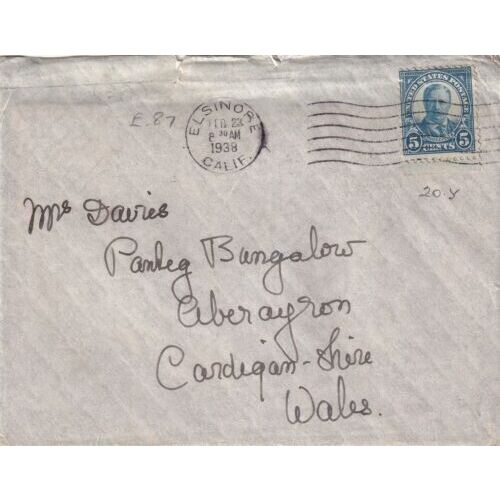 E.87
ELSINORE
FEB 23
8 30 AM
1938
CALIF.
UNITED STATES POSTAGE
5 CENTS 5
20.y
Mrs Davies
Panteg Bungalow
Aberayron
Cardigan-Shire
Wales.